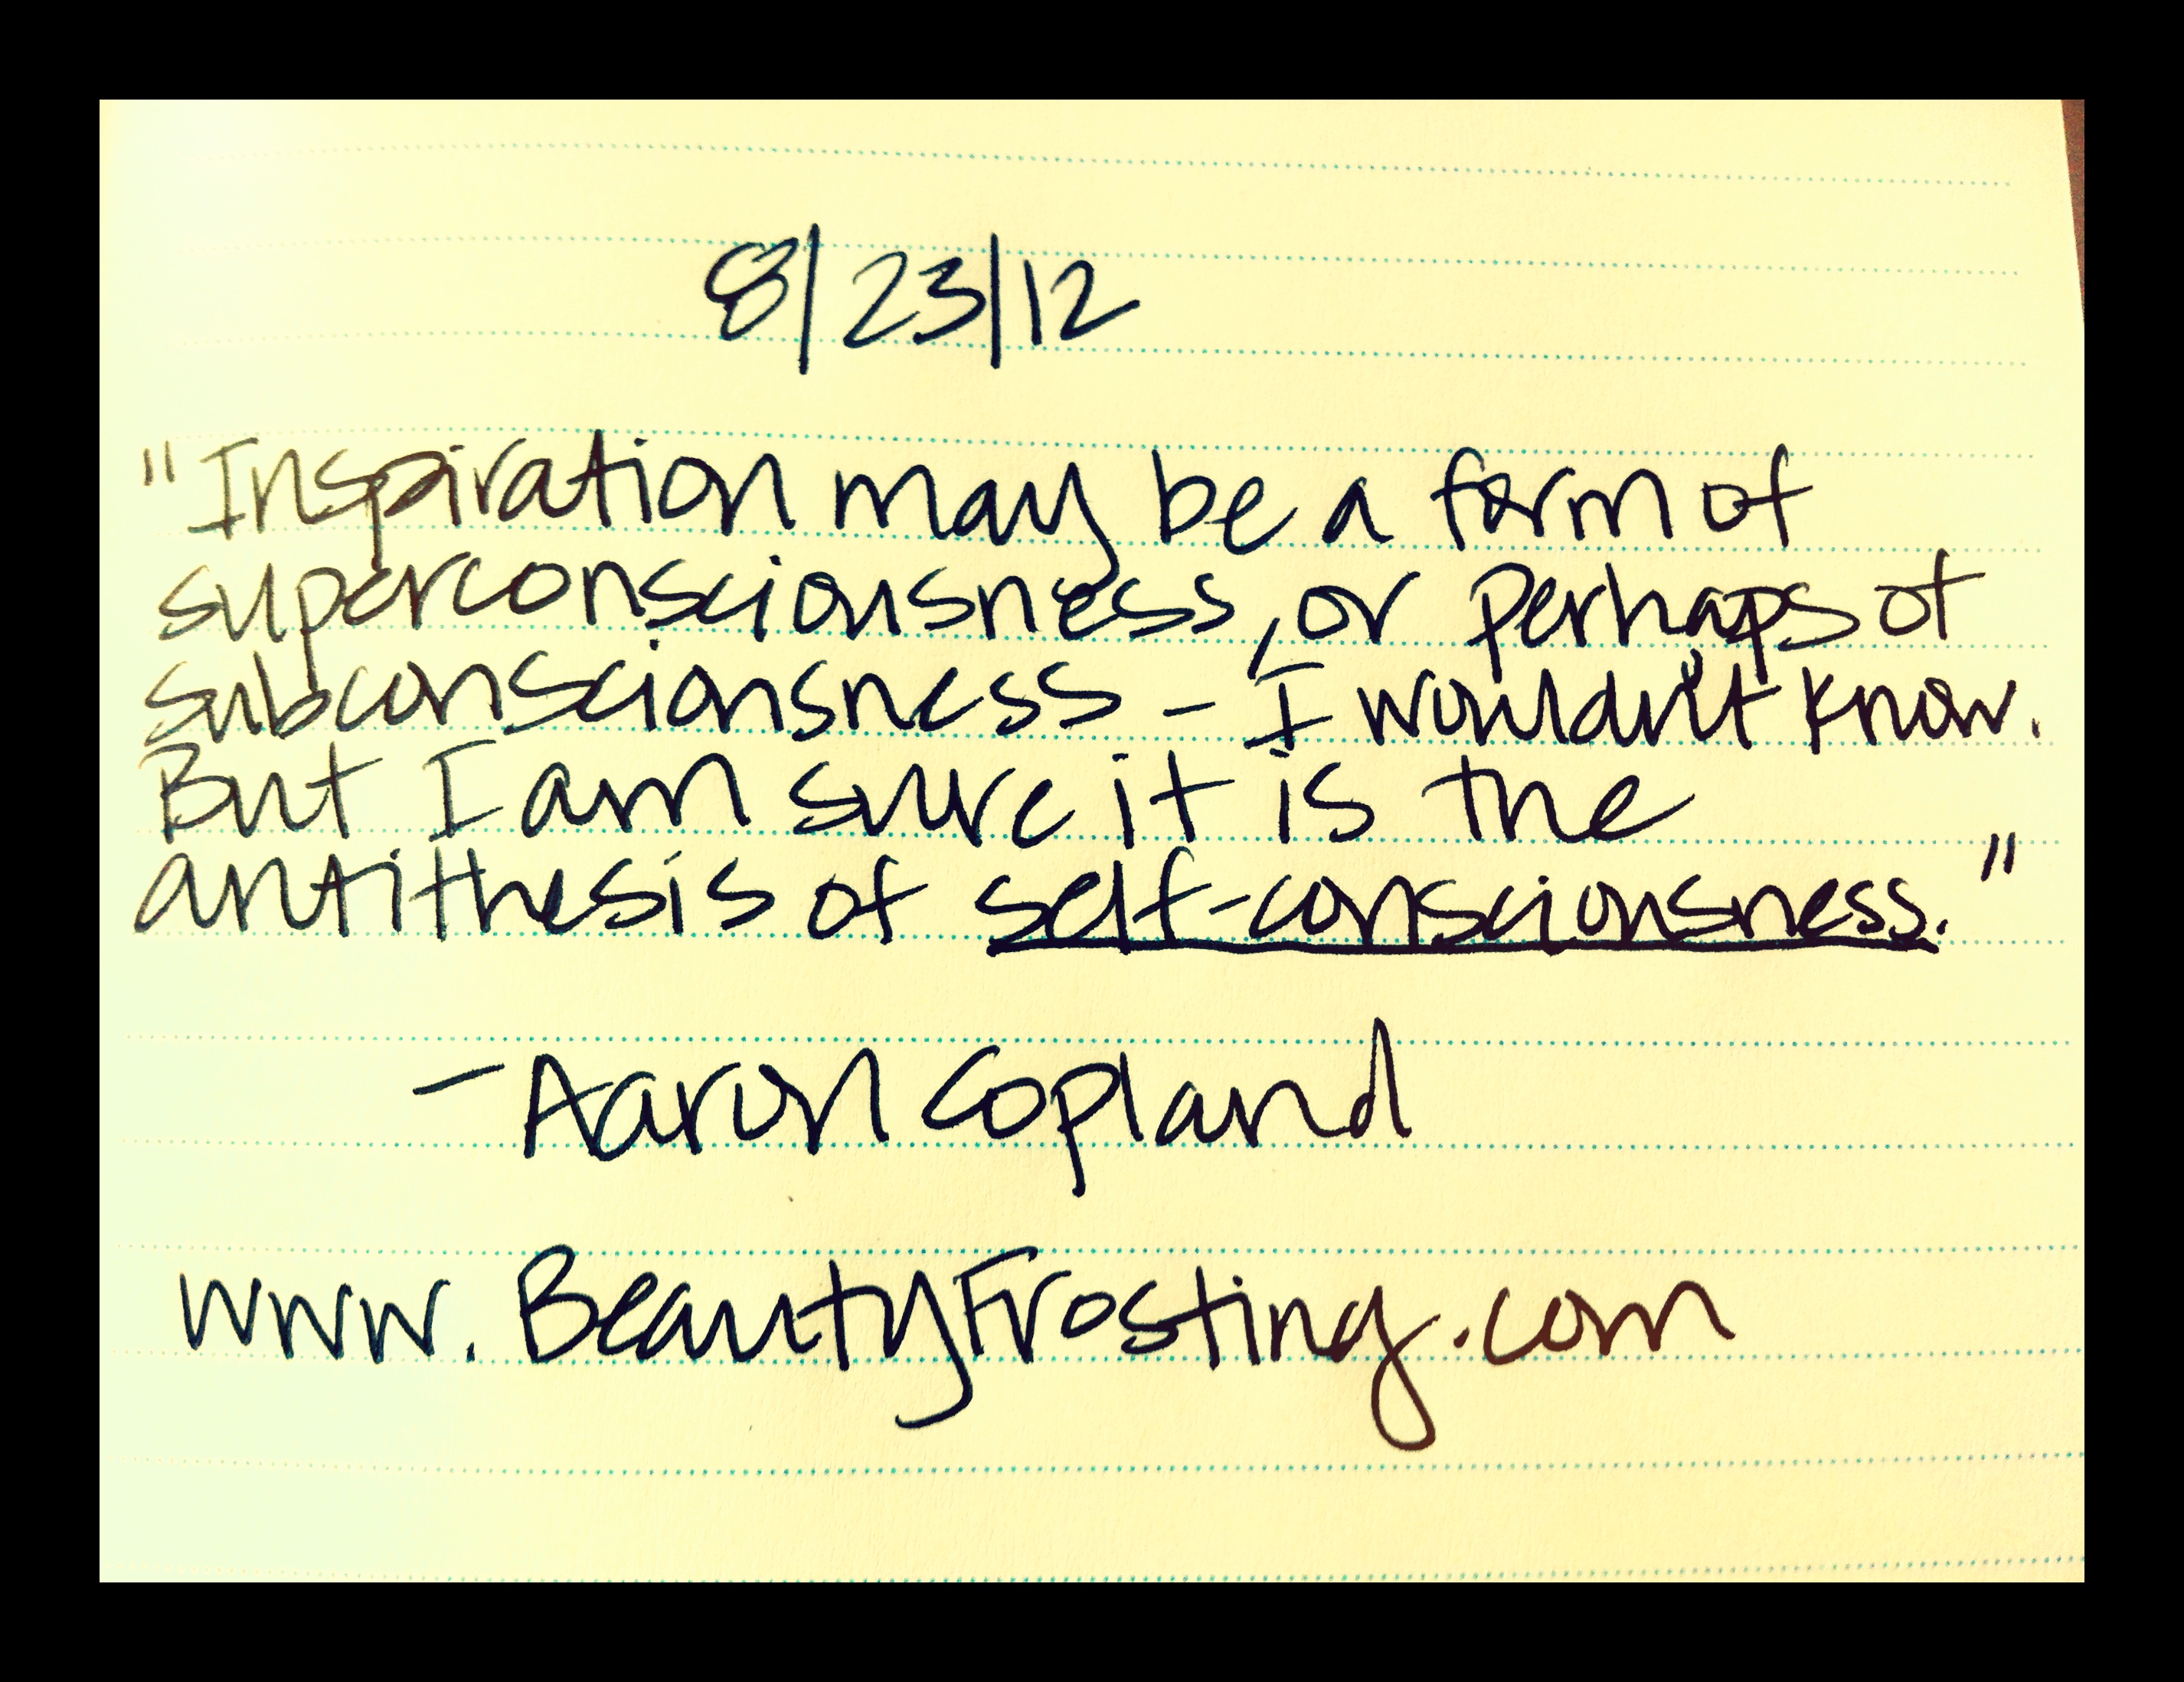 8/23/12
"Inspiration may be a form of
superconsciousness, or perhaps of
subconsciousness - I wouldn't know.
But I am sure it is the
antithesis of self-consciousness."
- Aaron Copland
www.BeautyFrosting.com